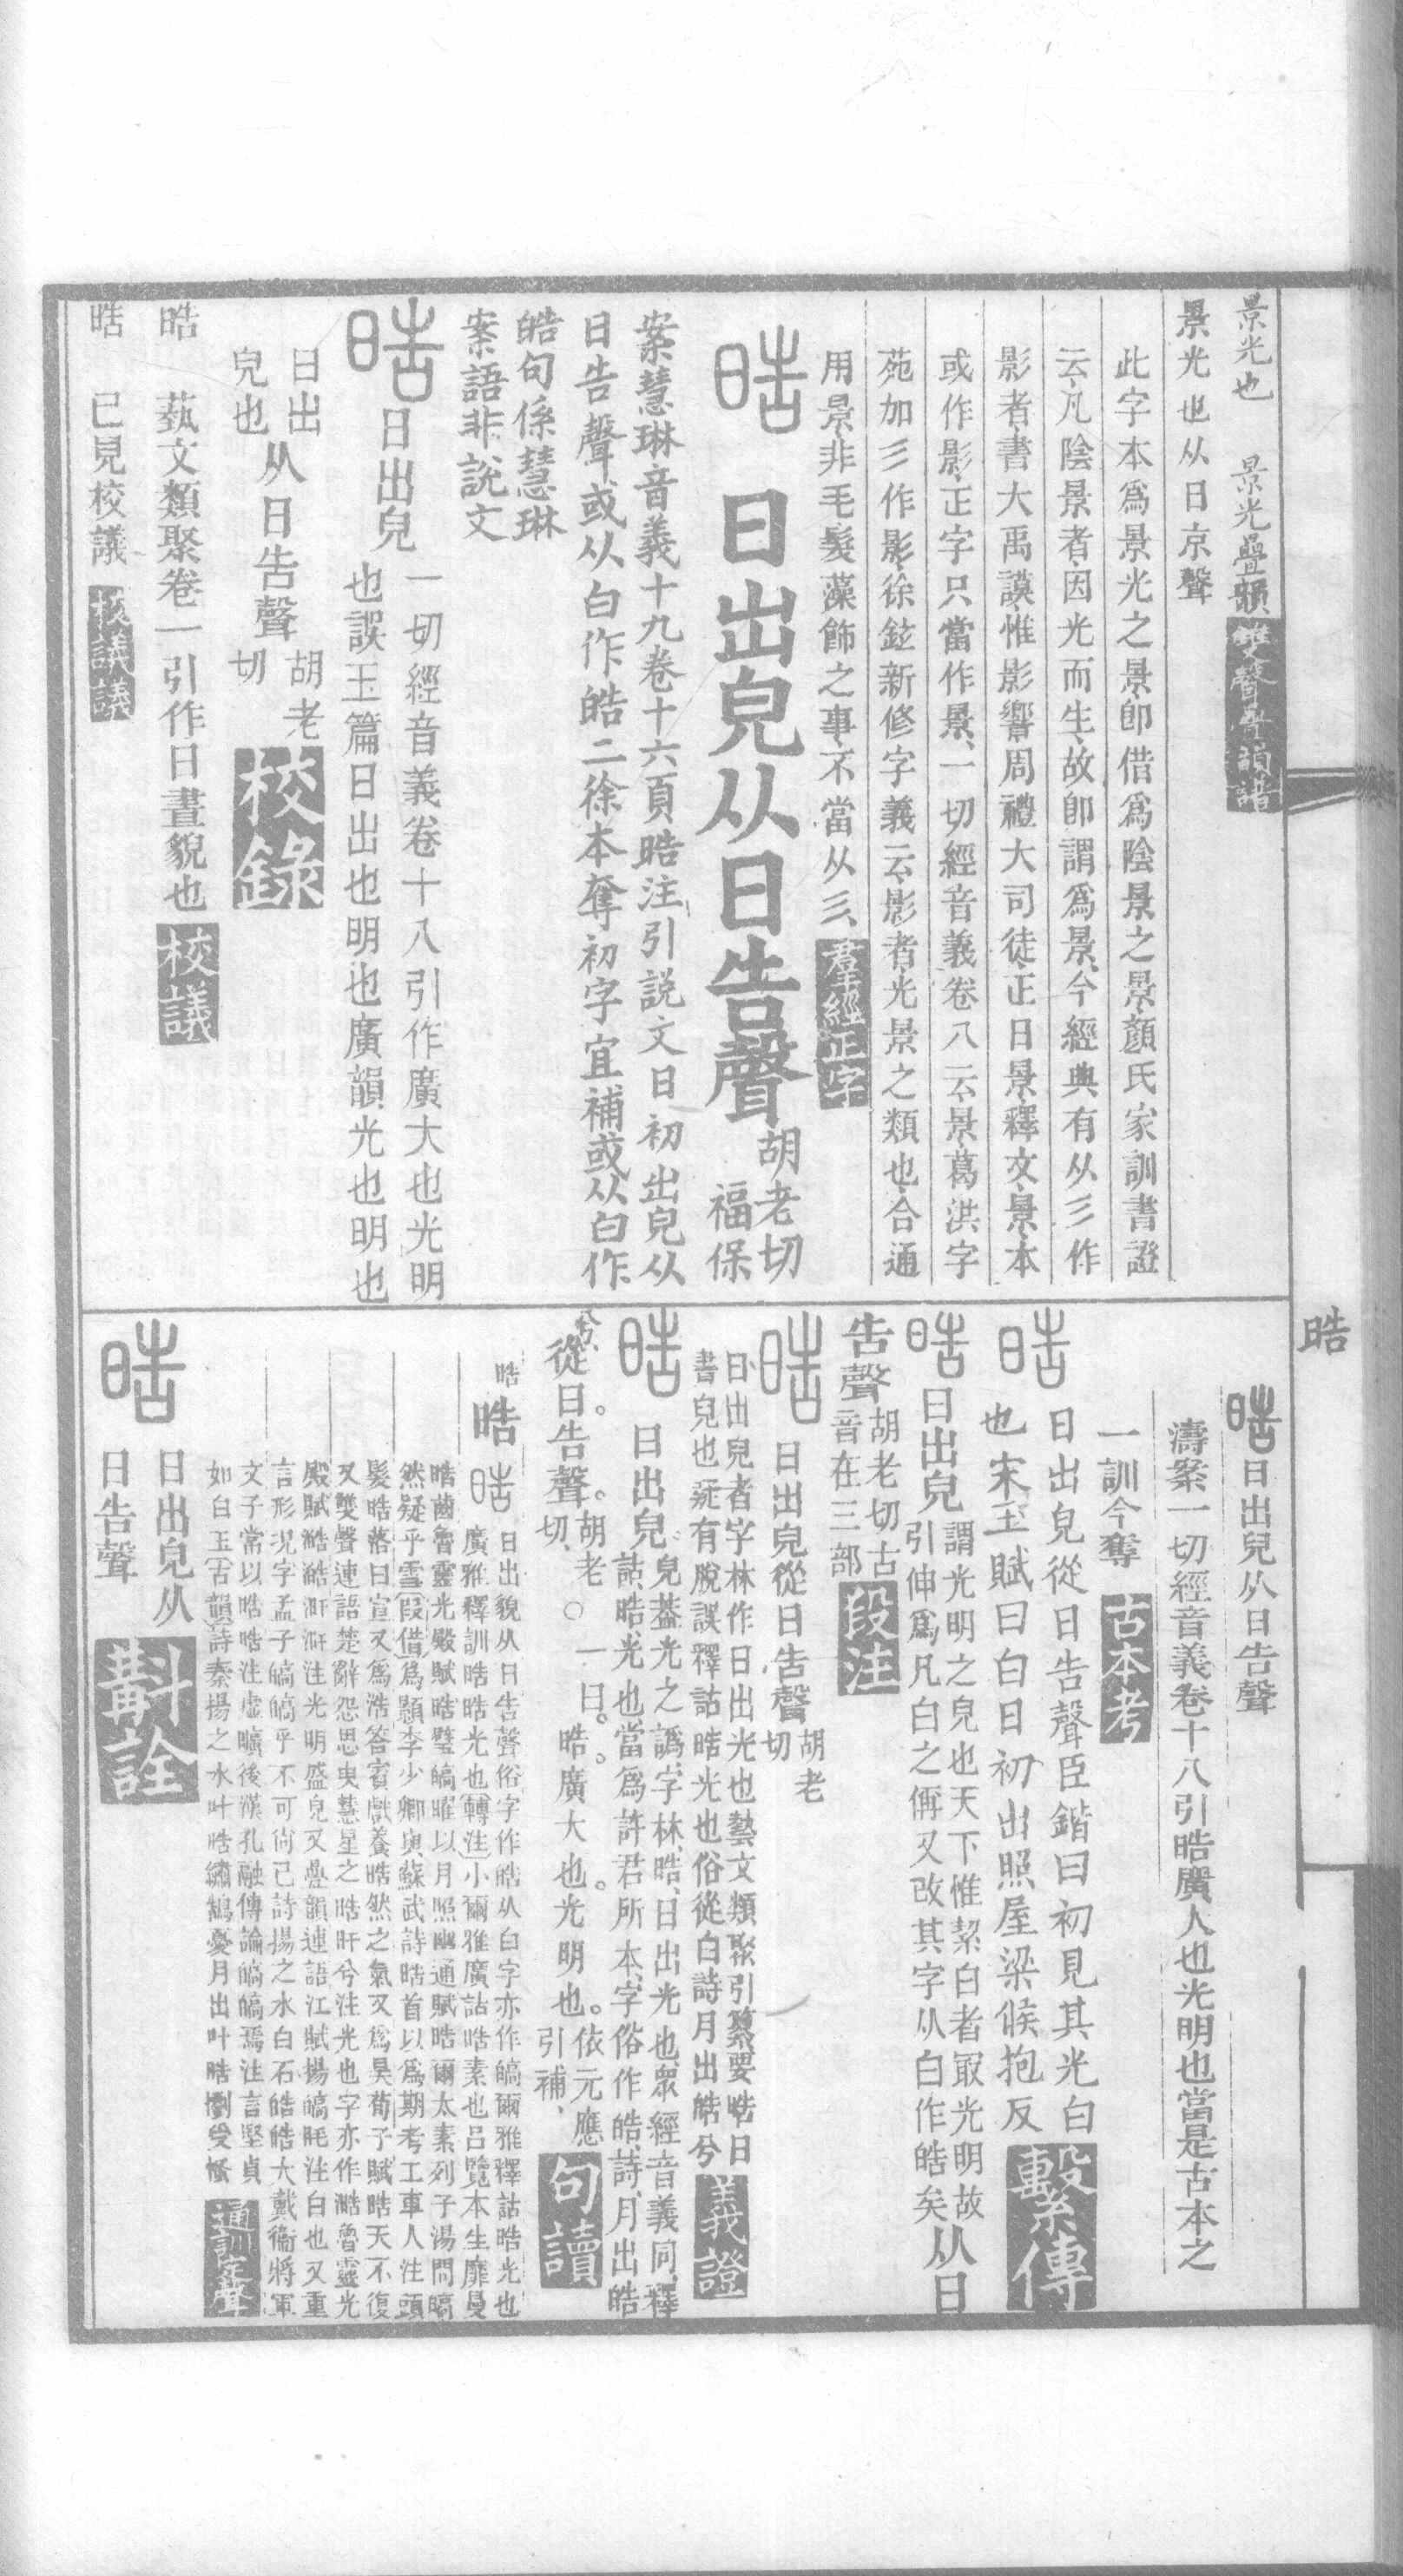 景光也　景光疊韻　雙聲疊韻譜
景光也从日京聲
此字本爲景光之景、卽借爲陰景之景、顏氏家訓書證
云、凡陰景者、因光而生、故卽謂爲景、今經典有从彡作
影者、書大禹謨、惟影響、周禮大司徒、正日景、釋文、景、本
或作影、正字只當作景、一切經音義卷八云、景、葛洪字
苑加彡作影、徐鉉新修字義云、影者、光景之類也、合通
用景、非毛髮藻飾之事、不當从彡、羣經正字
晧　日出皃从日告聲　胡老切　福保
案慧琳音義十九卷十六頁晧注引說文日初出皃从
日告聲或从白作皓二徐本奪初字宜補或从白作
皓句係慧琳
案語非說文
晧　日出皃　一切經音義卷十八引作廣大也光明
也誤玉篇日出也明也廣韻光也明也
日出皃也　从日告聲　胡老切　校錄
晧　藝文類聚卷一引作日晝貌也　校議
晧　已見校議　校議議
晧
晧　日出皃从日告聲
濤案一切經音義卷十八引晧廣人也光明也當是古本之
一訓今奪　古本考
晧　日出皃從日告聲臣鍇曰初見其光白
也宋玉賦曰白日初出照屋梁候抱反　繫傳
晧　日出皃　謂光明之皃也天下惟絜白者冣光明故
引伸爲凡白之偁又改其字从白作皓矣　从日
告聲　胡老切古音在三部　段注
晧　日出皃從日告聲　胡老切
日出皃者字林作日出光也藝文類聚引纂要晧日
書皃也疑有脫誤釋詁晧光也俗從白詩月出皓兮　義證
晧　日出皃。皃葢光之譌、字林、晧、日出光也、衆經音義同、釋
詁、晧、光也、當爲許君所本、字俗作皓、詩、月出皓
兮、從日。告聲。胡老切、○一曰。晧。廣大也。光明也。依元應引補、　句讀
晧　晧　晧　日出貌从日告聲俗字作皓从白字亦作皜爾雅釋詁晧光也
廣雅釋訓晧晧光也轉注小爾雅廣詁晧素也呂覽本生靡曼
晧齒魯靈光殿賦晧壁皜曜以月照幽通賦晧爾太素列子湯問皜
然疑乎雪叚借爲顥李少卿與蘇武詩晧首以爲期考工車人注頭
髮晧落曰宣又爲浩答賓戲養晧然之氣又爲昊荀子賦晧天不復
又雙聲連語楚辭怨思曳彗星之晧旰兮注光也字亦作澔魯靈光
殿賦澔澔涆涆注光明盛皃又疊韻連語江賦揚皜毦注白也又重
言形況字孟子皜皜乎不可尙已詩揚之水白石皓皓大戴衞將軍
文子常以晧晧注虛曠後漢孔融傳論皜皜焉注言堅貞
如白玉古韻詩秦揚之水叶晧繡鵠憂月出叶晧懰受慅　通訓定聲
晧　日出皃从日告聲　斠詮